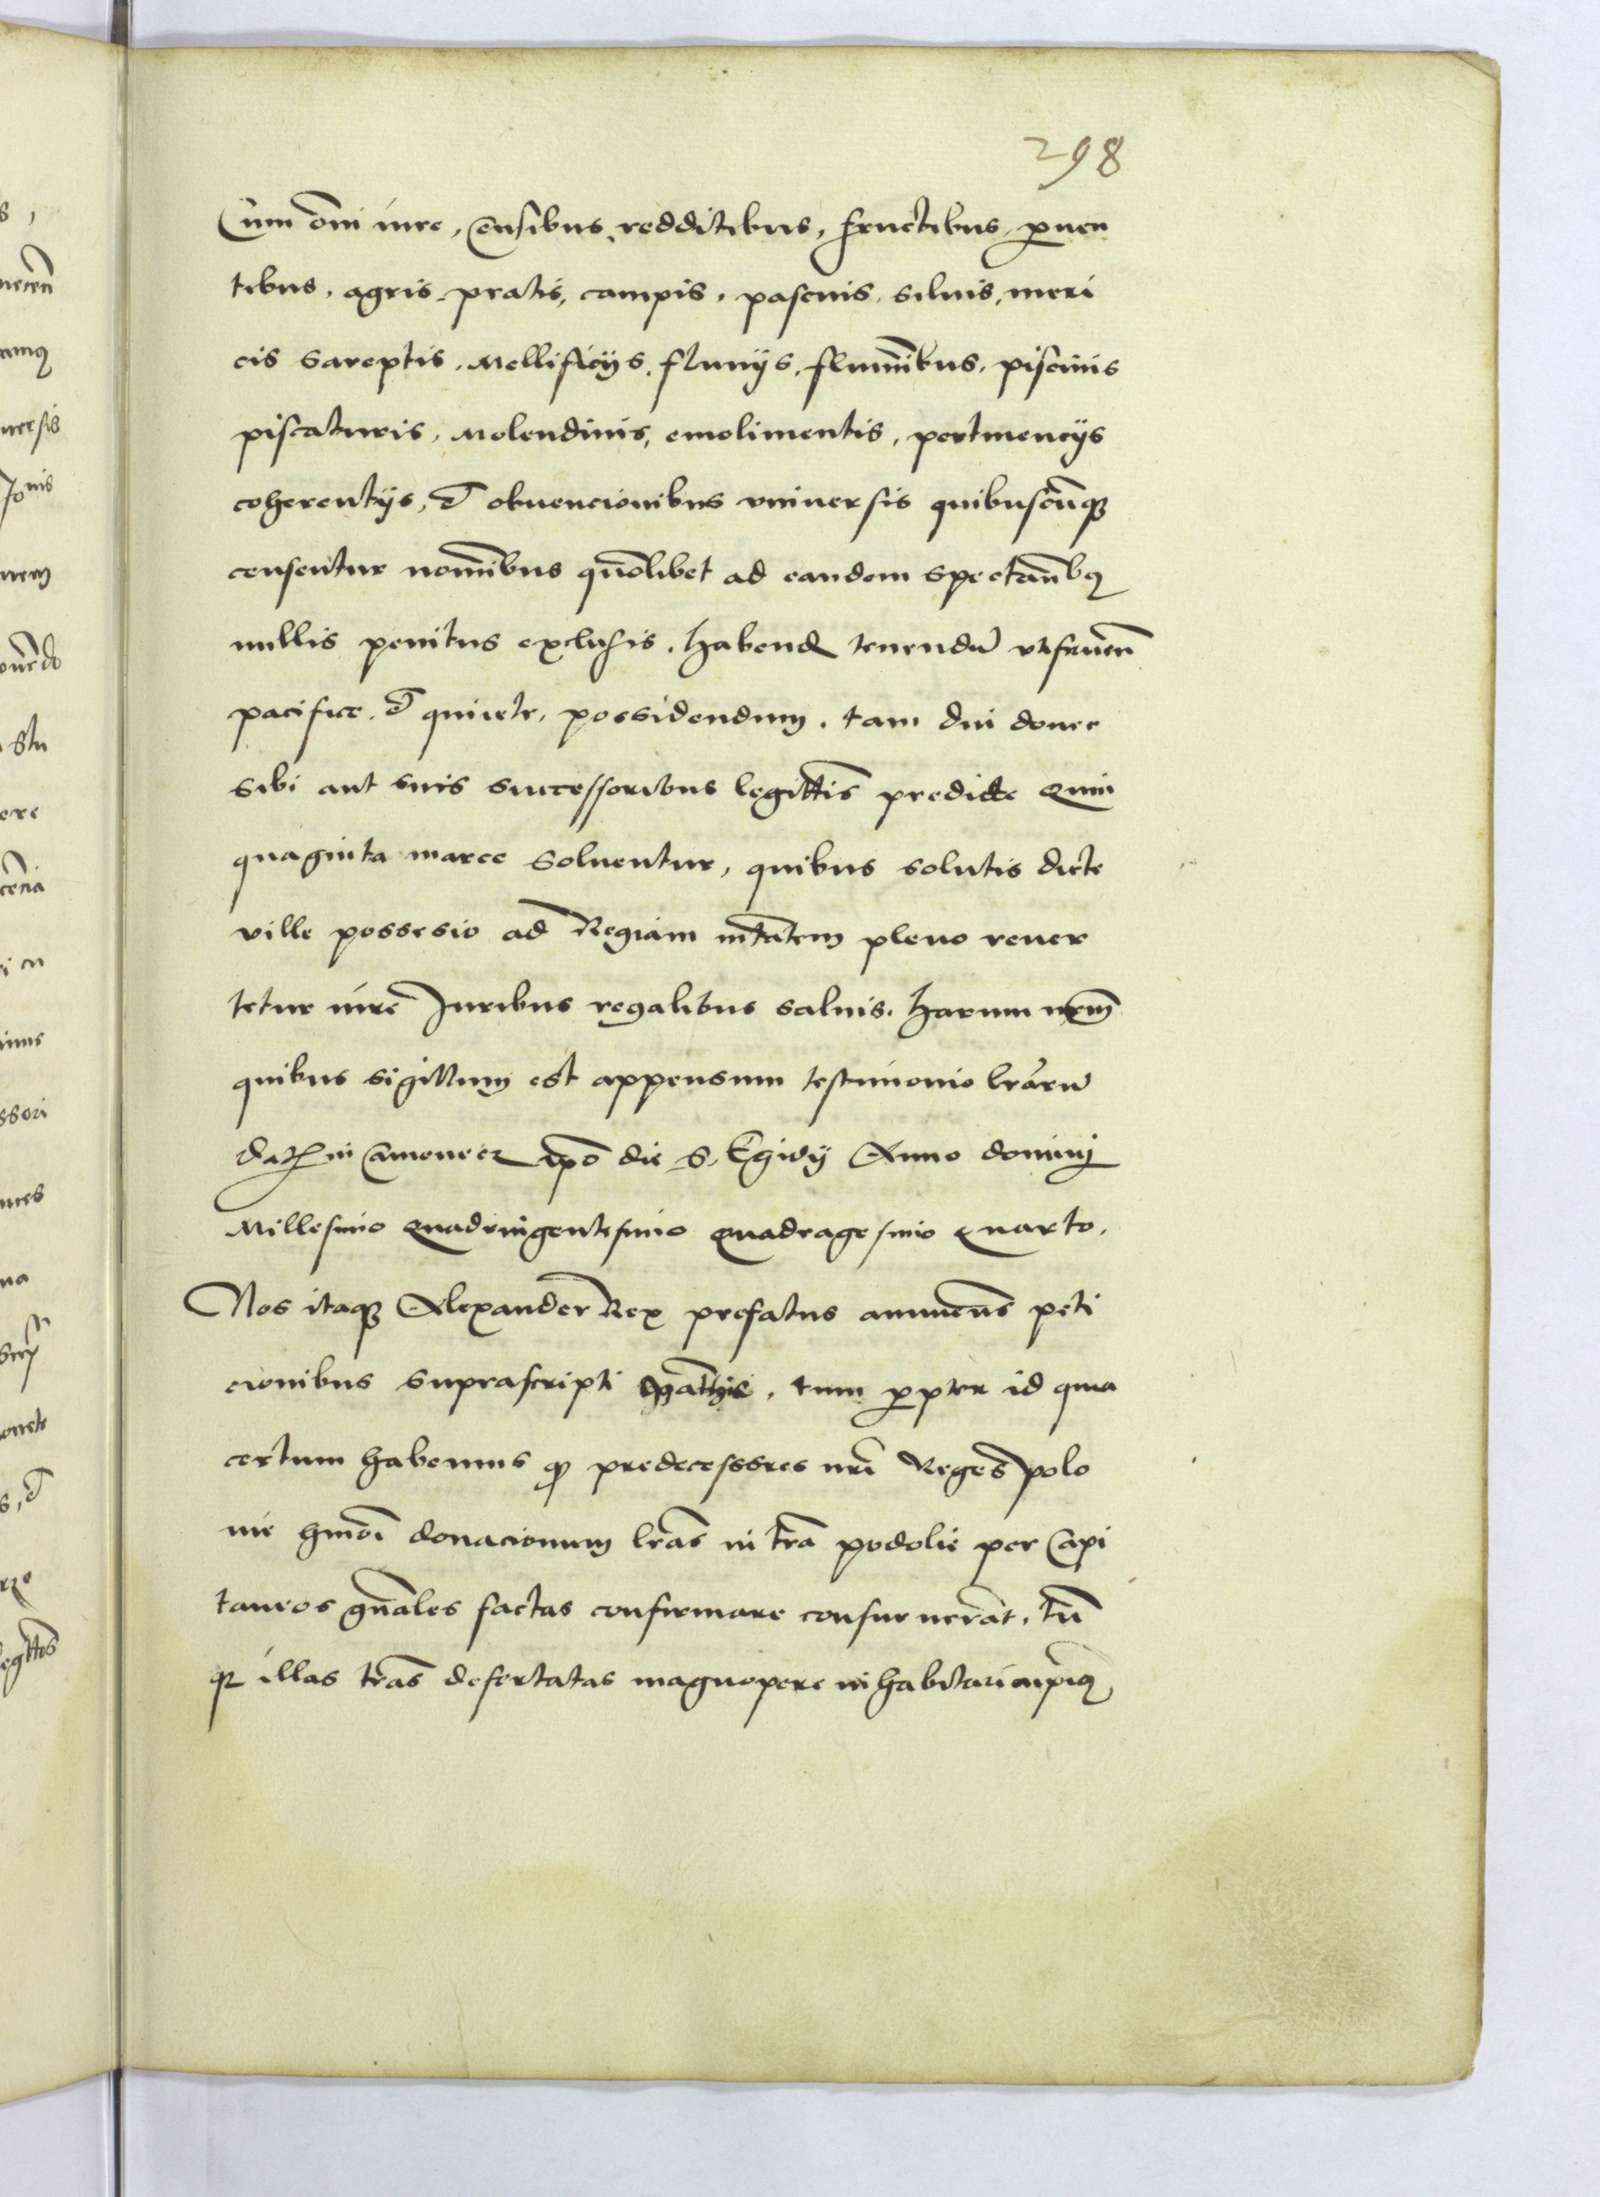 298
Cum om̄i iure, Censibus, redditibus, fructibus, ꝓuen
tibus, agris, pratis, campis, pascuis, siluis, meri
cis Sareptis, Mellificijs, fluuijs, flumīnibus, piscinis
piscaturis, Molendinis, emolimentis, pertinencijs
coherentijs, et obuencionibus vniuersis quibuscūqꝫ
censentur nomībus quōlibet ad eandem spectan̄bꝫ
nullis penitus exclusis, habend tenendū vtfruen̄
pacifice, et quiete, possidendum, tam diu donec
sibi aut suis successoribus legittīs predicte Quin
quaginta marce soluentur, quibus solutis dicte
ville possesio ad Regiam mt̄atem pleno reuer
tetur iure Juribus regalibus saluis, harum nr̄m
quibus sigillum est appensum testimonio lrārū
Dat in Camenecz ip̄o die S. Egidij Anno dominj
Millesimo Quadringentesimo Quadragesimo Quarto.
Nos itaqꝫ Alexander Rex prefatus annuens peti
cionibus suprascripti Mathie, tum ꝓpter id quia
certum habemus ꝙ predecessores nr̄i Reges polo
nie hmōi donacionum lrās in trā podolie per Capi
taneos gn̄ales factas confirmare consueuerāt, tū
qꝫ illas trās desertatas magnopere inhabitari